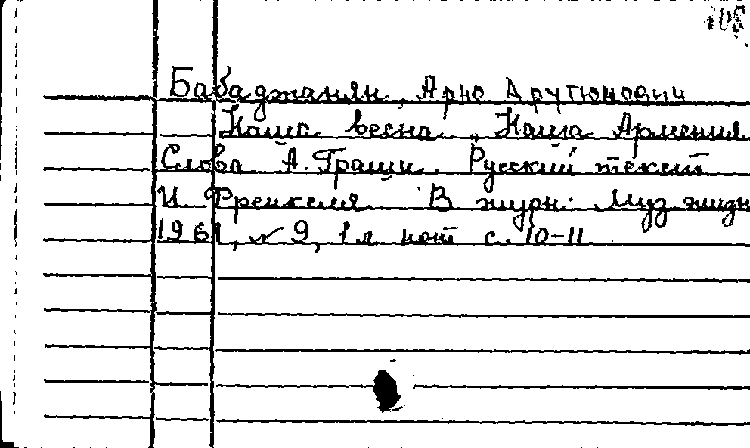 108
Бабаджанян, Арно Арутюнович
Наша весна, Наша Армения
Слова А. Граши. Русский текст
И. Френкеля. В журн: Муз жизн
1961, № 9, 1 л нот с. 10-11